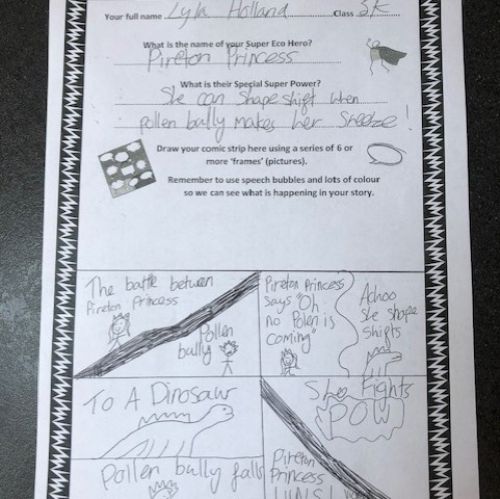 Your full name Lyla Holland Class 3K
What is the name of your Super Eco Hero?
Pireton Princess
What is their Special Super Power?
She can shapeshift when
pollen bully makes her sneeze!
Draw your comic strip here using a series of 6 or
more 'frames' (pictures).
Remember to use speech bubbles and lots of colour
so we can see what is happening in your story.
The battle between
Pireton Princess
Pollen
bully
Pireton Princess
says "Oh
no Polen is
coming"
Achoo
she shape
shifts
To A Dinosaur
She Fights
POW
Pollen bully falls
Pireton
Princess
WINS!